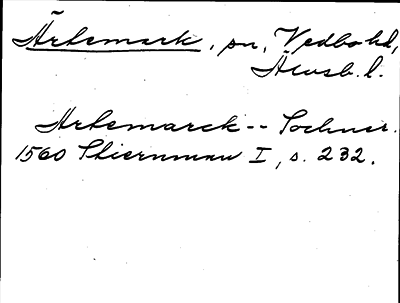 Ärtemark, sn, Vedbo hd,
Älvsb. l.
Artemarck -- Sochnn.
1560 Stiernman I, s. 232.